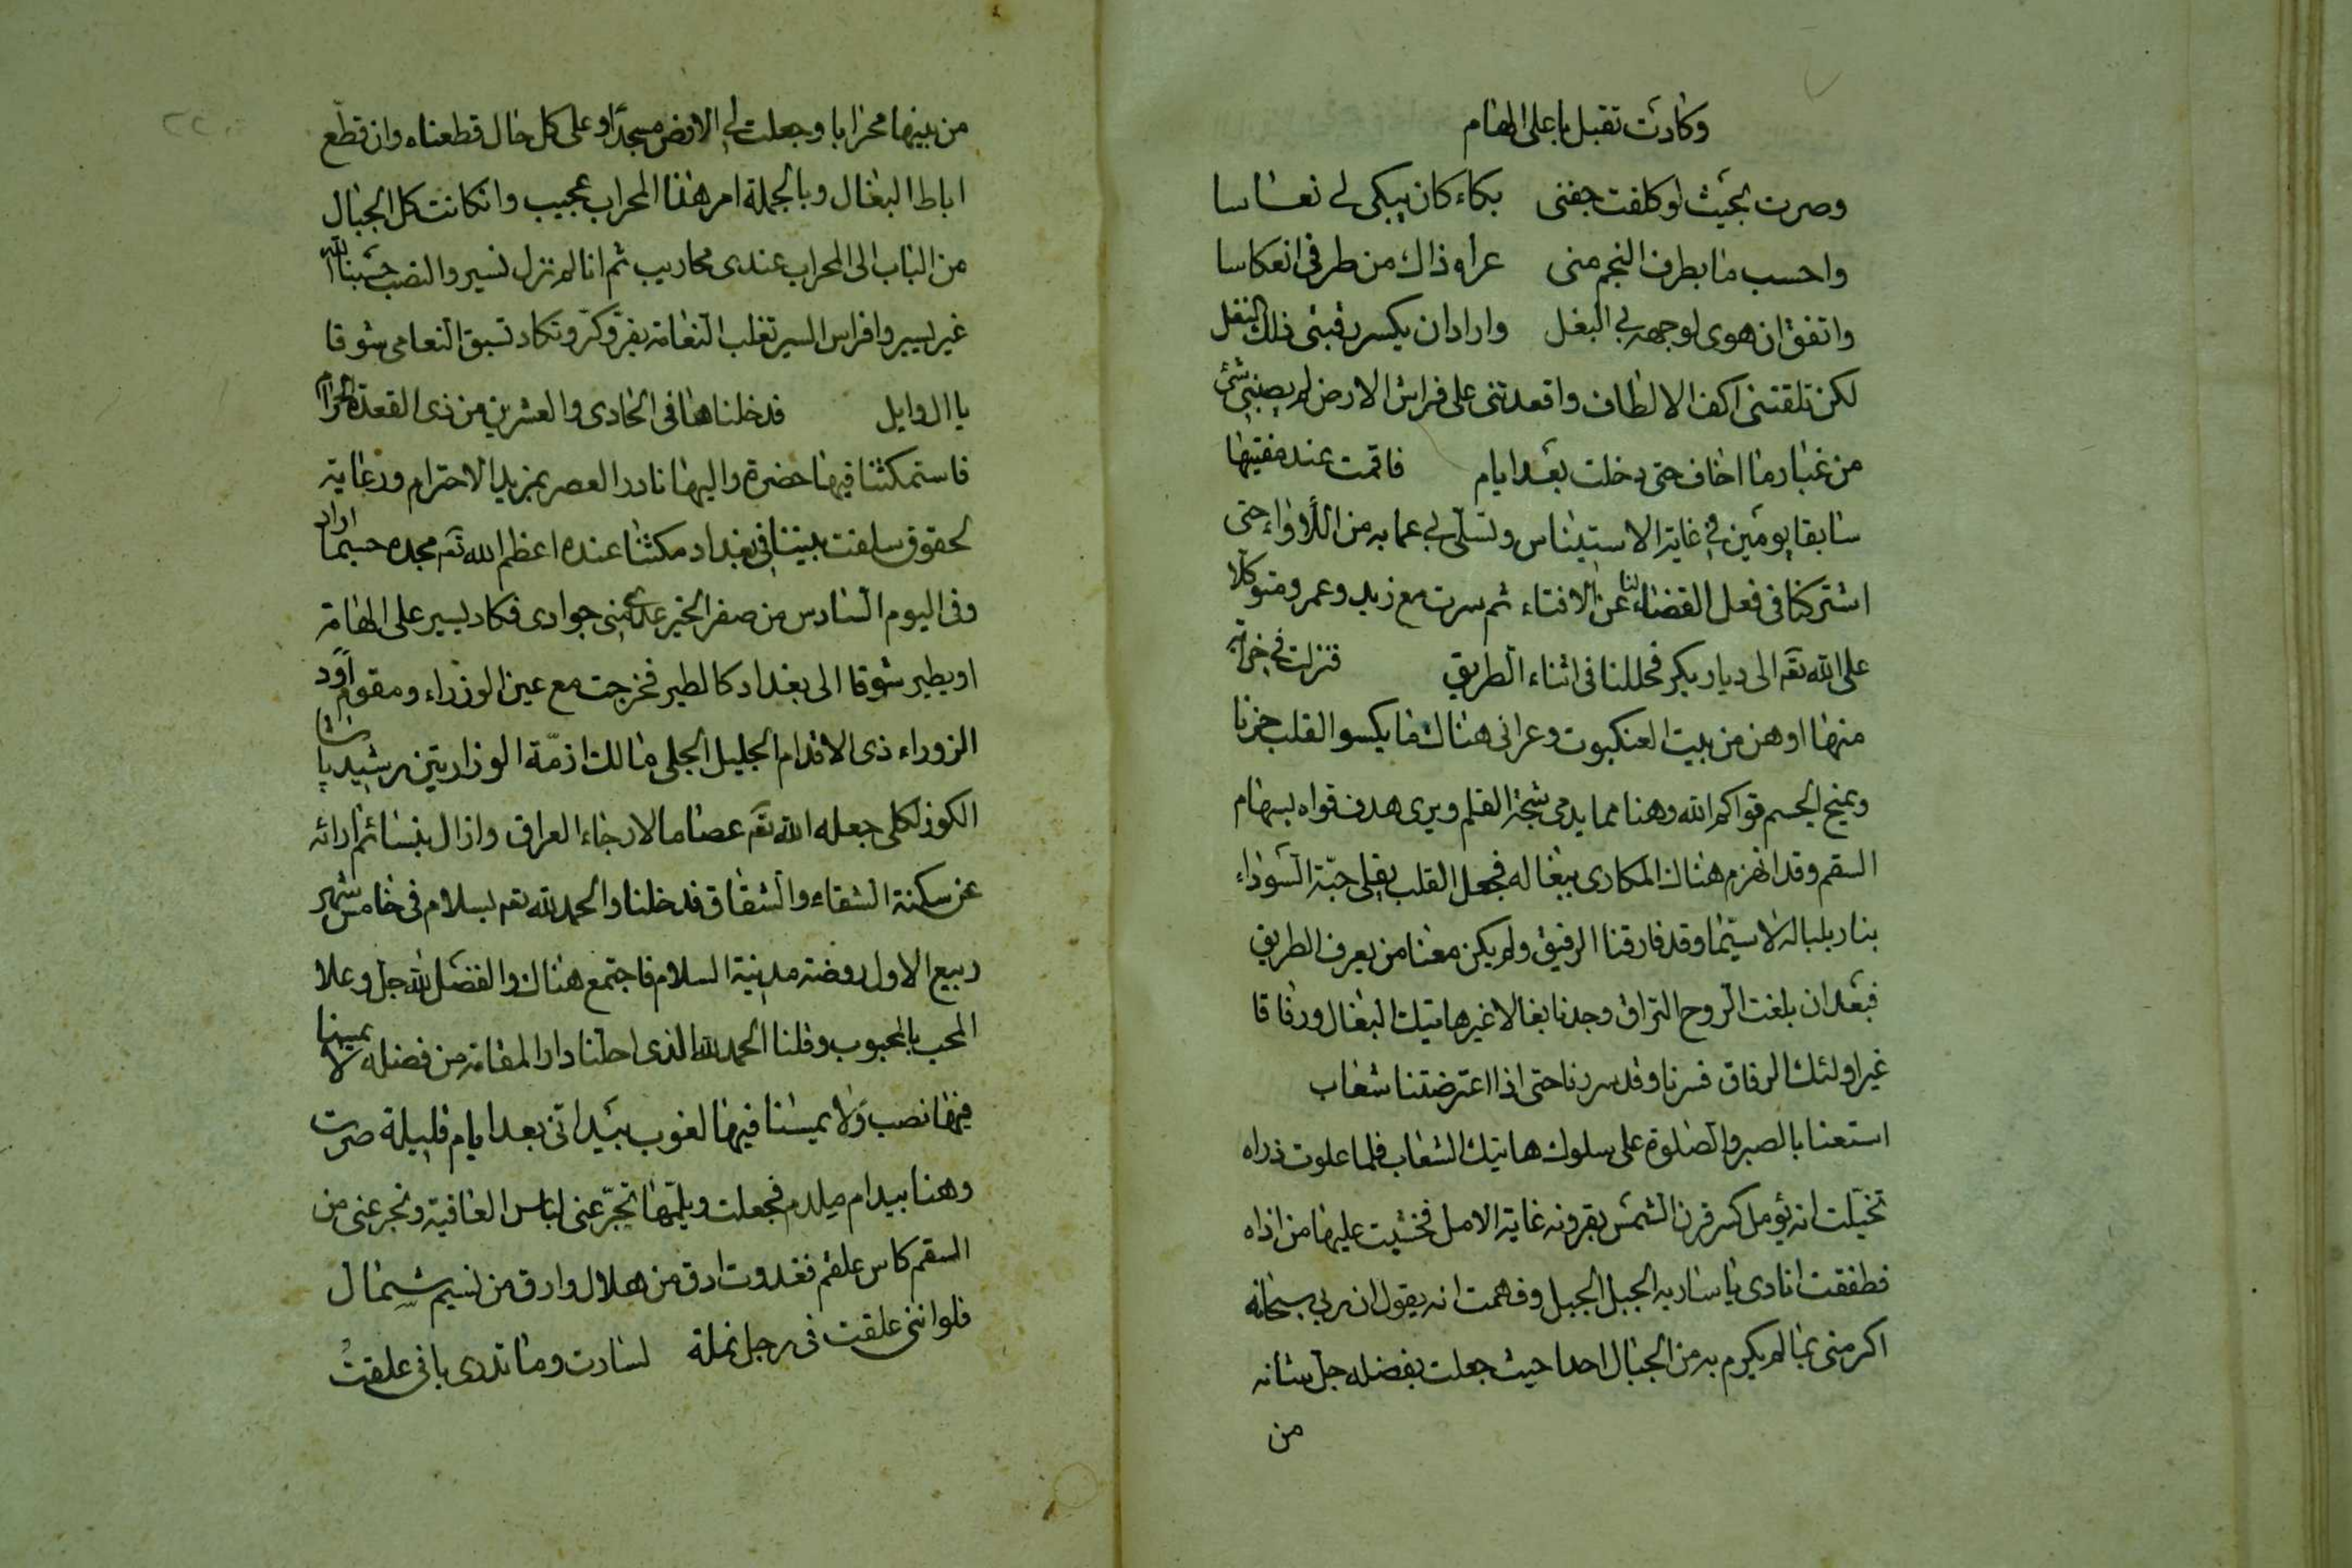 وكادت تقبل باعلى الهام
وصرت بحيث لو كلفت جفنى بكاء كان يبكى لى نعاسا
واحسب ما بطرف النجم منى عراه ذاك من طرفى انعكاسا
واتفق ان هوى لوجهه بى البغل واراد ان يكسر رقبتى ذلك النغل
لكن تلقتنى اكف الالطاف واقعدتنى على فراش الارض لم يصبنى شئ
من غبار ما اخاف حتى دخلت بعد ايام فاقمت عند مفتيها
سابقا يومين فى غاية الاستيناس وتسلى بى عما به من اللأواء حتى
اشتركنا فى فعل القضاء لنا عن الافتاء ثم سرت مع زيد وعمرو متوكلا
على الله تعه الى ديار بكر فحللنا فى اثناء الطريق فنزلت فى
منها اوهن من بيت العنكبوت وعرانى هناك ما يكسو القلب حزنا
ويمنح الجسم قواكم الله وهنا مما يدمى شجة القلم ويرى هدف قواه بسهام
السقم وقد انهزم هناك المكارى ببغاله فجعل القلب يقلى حبة السوداء
بنار بلباله لا سيما وقد فارقنا الرفيق ولم يكن معنا من يعرف الطريق
فبعد ان بلغت الروح التراق وجدنا بغالا غير هاتيك البغال ورفاقا
غير اولئك الرفاق فسرنا وقد سررنا حتى اذا اعترضتنا شعاب
استعنا بالصبر والصلوة على سلوك هاتيك الشعاب فلما علوت ذراه
تخيلت انه يؤمل كسر قرن الشمس بقرونه غاية الامل فخشيت عليها من اذاه
فطفقت انادى يا سارية الجبل الجبل وفهمت انه يقول ان ربى سبحانه
اكرمنى بما لم يكرم به من الجبال احدا حيث جعلت بفضله جل شانه
من
من بينها محرابا وجعلت لى الارض مسجدا وعلى كل حال قطعناه وان قطع
اباط البغال وبالجملة امر هذا المحراب عجيب وان كانت كل الجبال
من الباب الى المحراب عندى محاريب ثم انا لم نزل نسير والنصب حسبنا الله
غير يسير وافراس السير تغلب النعامة بفر وكر وتكاد تسبق النعامى شوقا
يا ال وايل فدخلناها فى الحادى والعشرين من ذى القعدة الحرام
فاستمكثنا فيها حضرة واليها نادر العصر بمزيد الاحترام ورعاية
لحقوق سلفت بيننا فى بغداد مكثنا عنده اعظم الله تعه مجده حسبما اراد
وفى اليوم السادس من صفر الخير منى جوادى فكاد يسير على الهامة
او يطير شوقا الى بغداد كالطير فخرجت مع عين الوزراء ومقوم اود
الزوراء ذى الاقدام الجليل الجلى مالك ازمة الوزارتين رشيد پاشا
الكوزلكلى جعله الله تعه عصاما لارجاء العراق وازال بنسائم ارائه
عن سكنة الشقاء والشقاق فدخلنا والحمد لله تعه بسلام فى خامس شهر
ربيع الاول روضة مدينة السلام فاجتمع هناك والفضل لله جل وعلا
المحب بالمحبوب وقلنا الحمد لله الذى احلنا دار المقامة من فضله لا يمسنا
فيها نصب ولا يمسنا فيها لغوب بيد انى بعد ايام قليلة صرت
وهنا بيد ام ملدم فجعلت ويلمها تجر عنى لباس العافية وتجرعنى من
السقم كاس علقم فغدوت ادق من هلال وارق من نسيم شمال
فلو اننى علقت فى رجل نملة لسارت وما تدرى بانى علقت